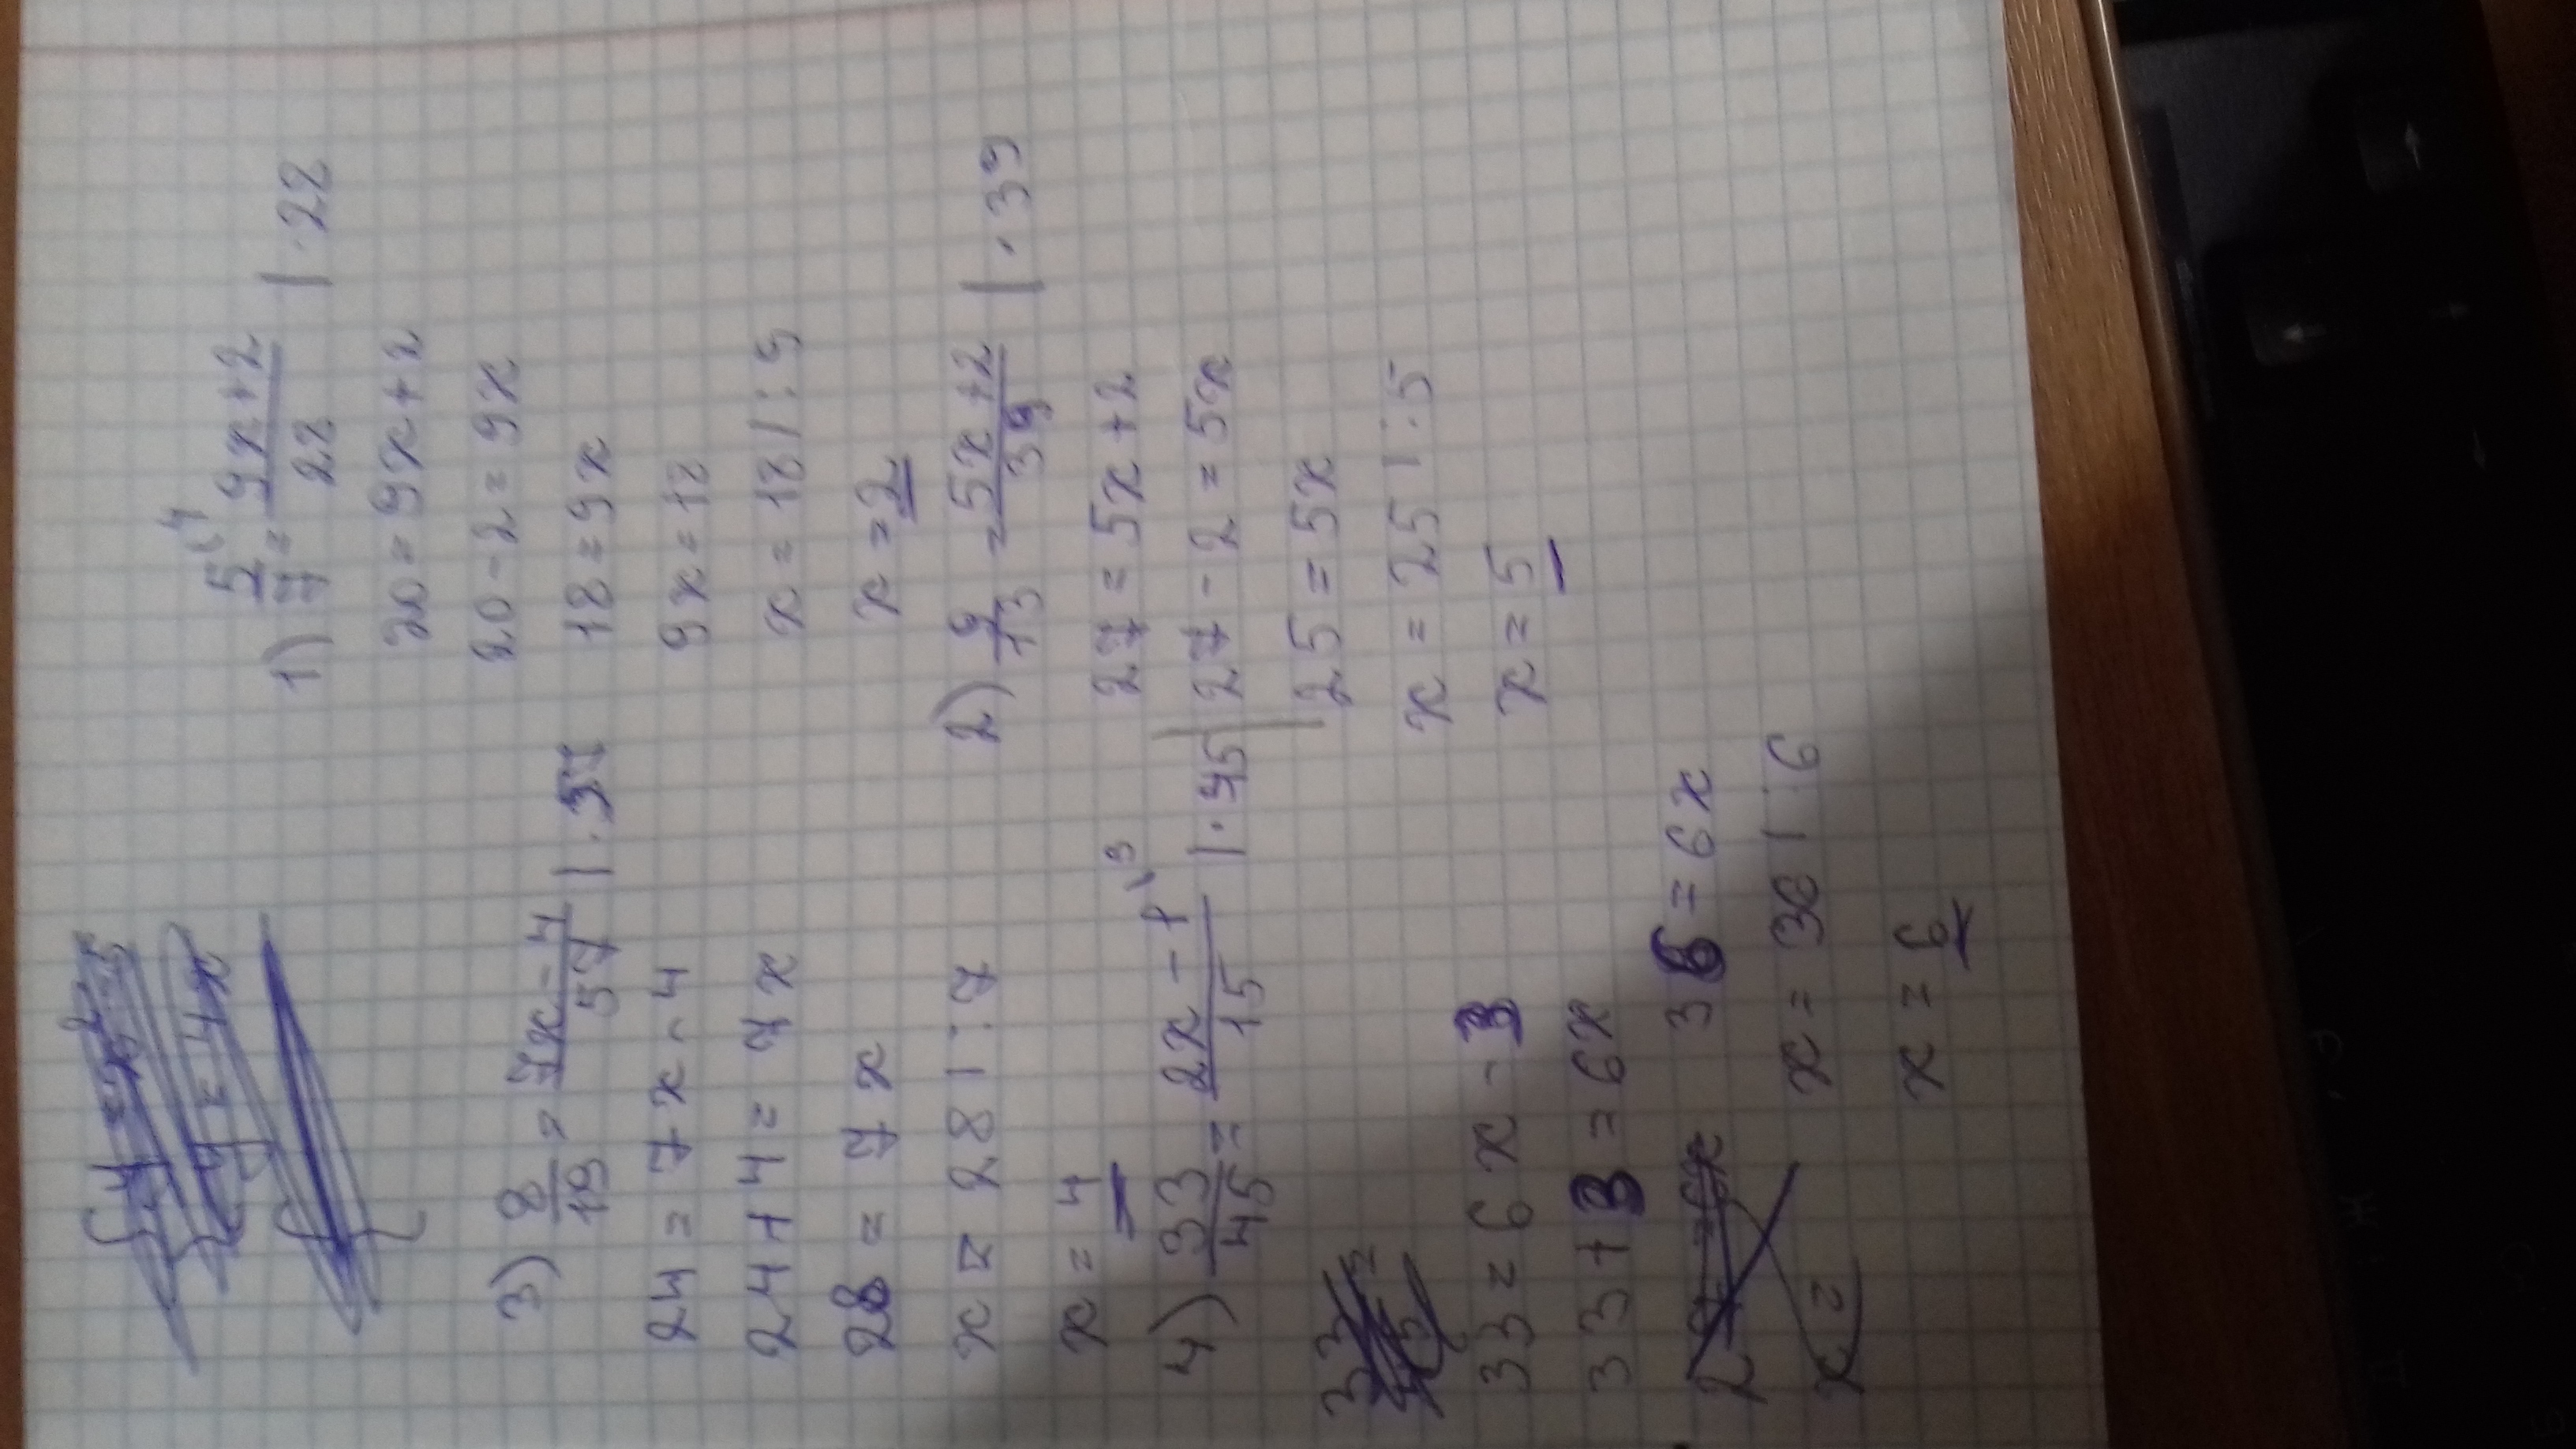 3) 8/19 = 7x-4/57 | · 57
24 = 7x - 4
24 + 4 = 7x
28 = 7x
x = 28 | : 7
x = 4
4) 33/45 = 2x - 1/15 (3 | · 45
33
33 = 6x - 3
33 + 3 = 6x
36 = 6x
x =
x = 36 | : 6
x = 6
1) 5/7 (4 = 9x+2/28 | · 28
20 = 9x+2
20 - 2 = 9x
18 = 9x
9x = 18
x = 18 | : 9
x = 2
2) 9/13 = 5x+2/39 | · 39
27 = 5x+2
27 - 2 = 5x
25 = 5x
x = 25 | : 5
x = 5